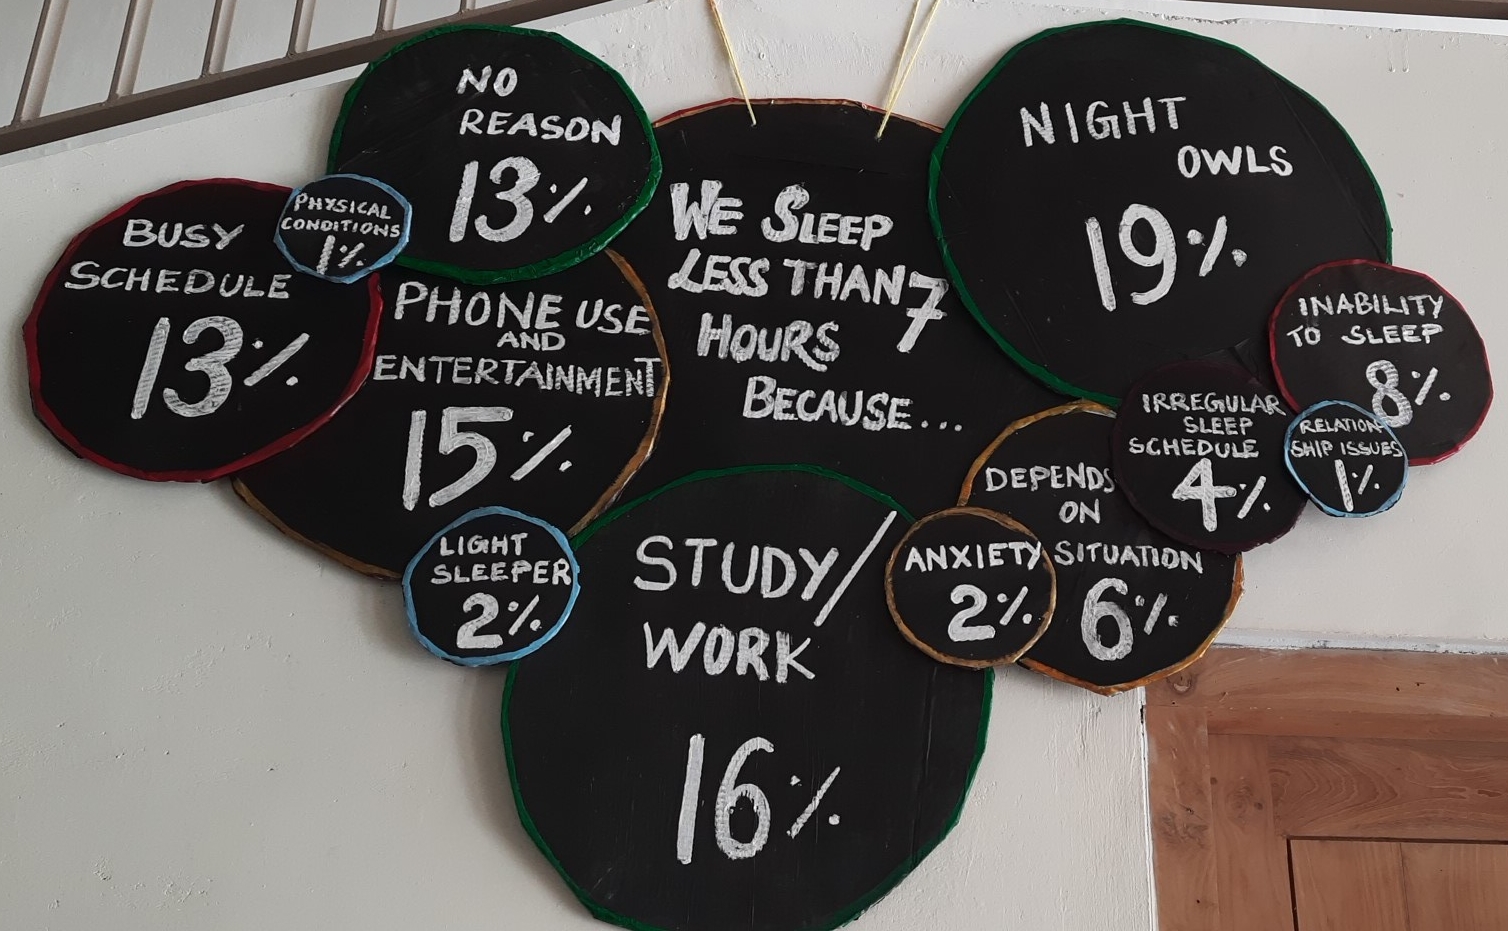 WE SLEEP
LESS THAN 7
HOURS
BECAUSE...
NO
REASON
13%
PHYSICAL
CONDITIONS
1%
BUSY
SCHEDULE
13%
PHONE USE
AND
ENTERTAINMENT
15%
LIGHT
SLEEPER
2%
STUDY/
WORK
16%
NIGHT
OWLS
19%
INABILITY
TO SLEEP
8%
IRREGULAR
SLEEP
SCHEDULE
4%
RELATION
SHIP ISSUES
1%
DEPENDS
ON
SITUATION
6%
ANXIETY
2%